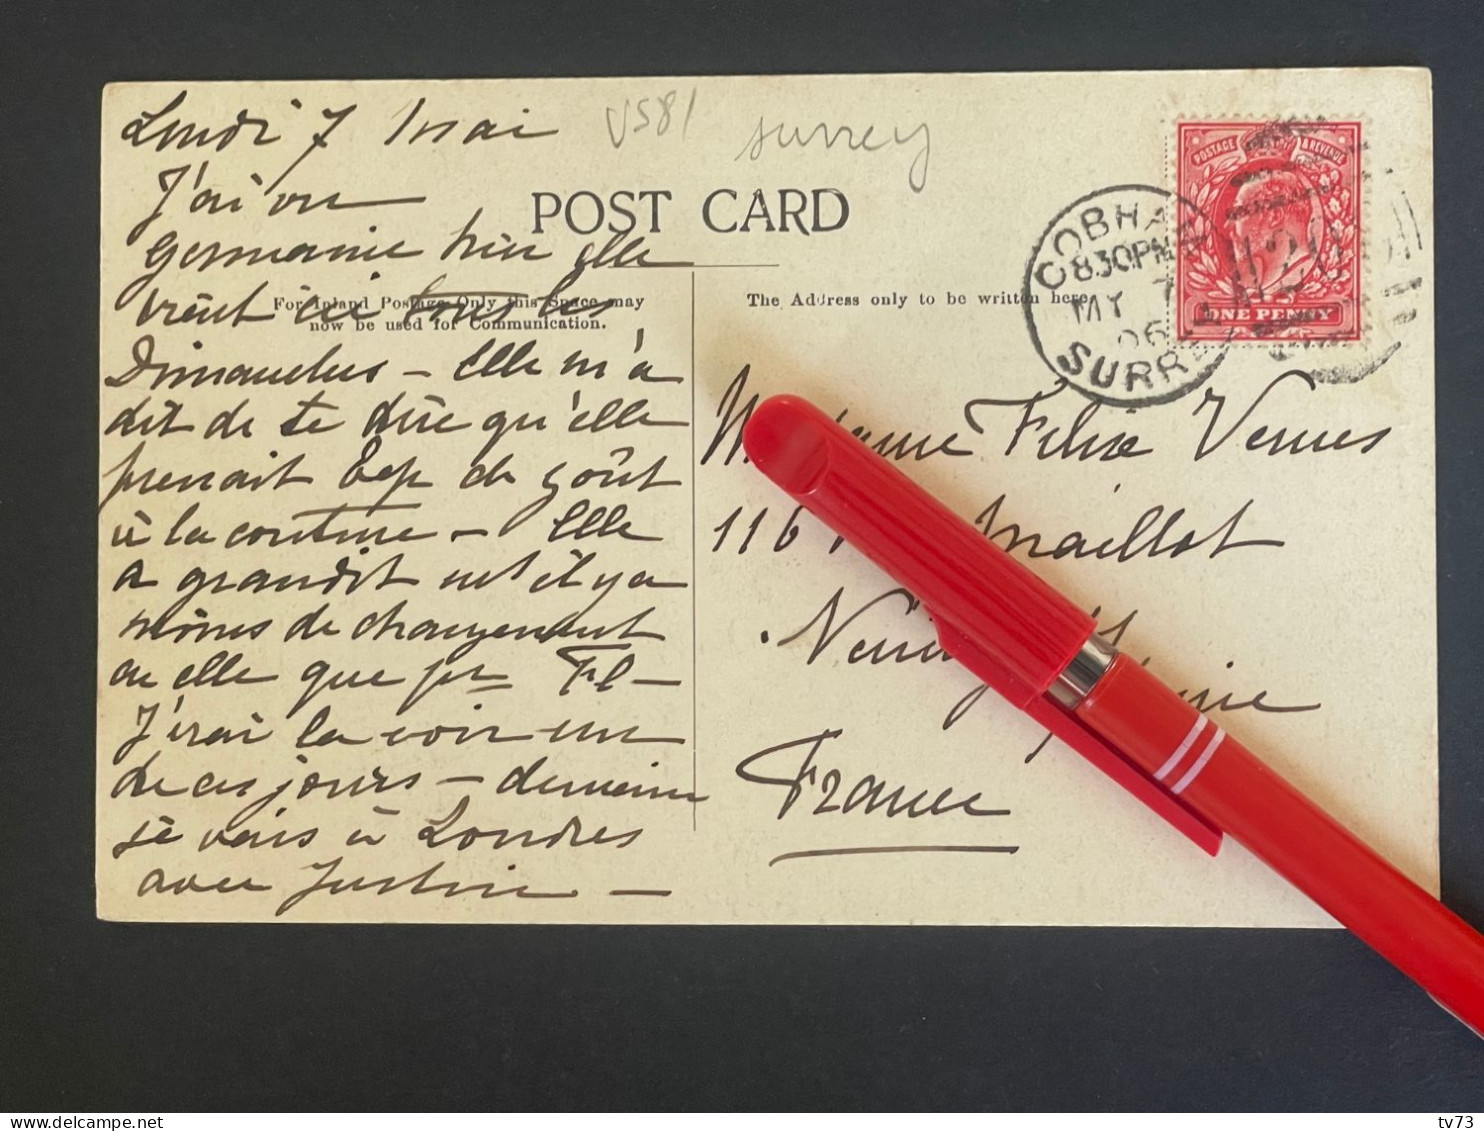 Lundi 7 Mai
V581
surrey
J'ai vu
POST CARD
Germaine hier elle
vient ici tous les
For Inland Postage Only this Space may
now be used for Communication.
Dimanches - Elle m'a
dit de te dire qu'elle
prenait bcp de goût
à la couture - Elle
a grandit et il y a
moins de changement
en elle que pr Fl -
J'irai la voir un
de ces jours - demain
je vais à Londres
avec Justine -
The Address only to be written here
COBHAM
8.30PM
MY 7
06
SURREY
POSTAGE & REVENUE
ONE PENNY
Madame Félix Vernes
116 Maillot
Neuilly
France
tv73